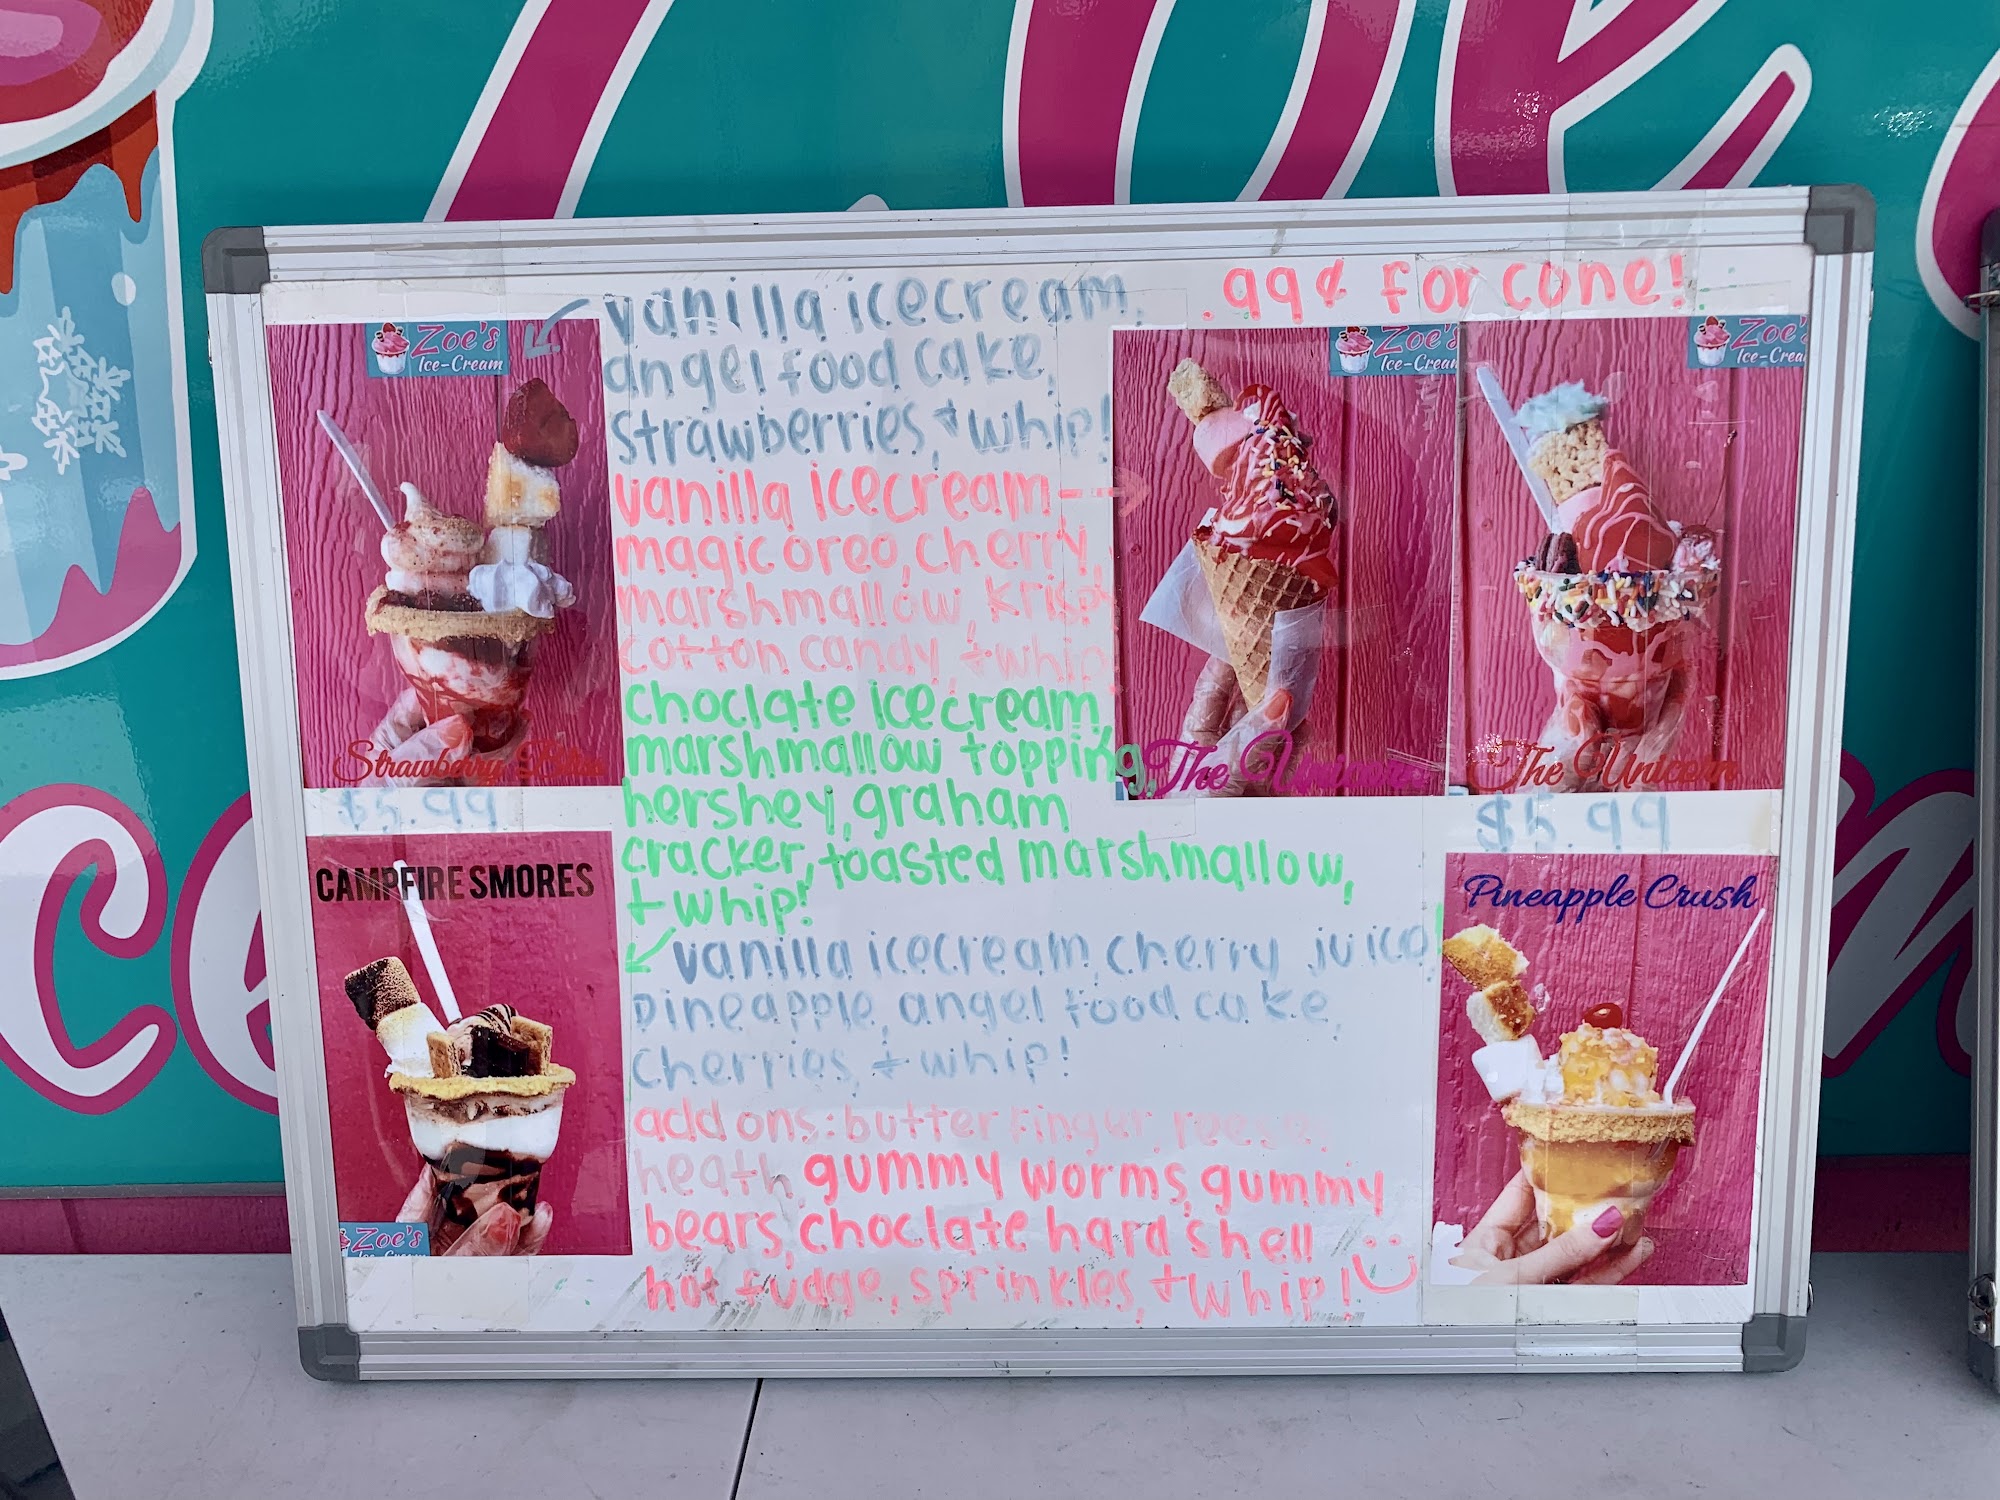 vanilla icecream,
angel food cake,
strawberries, + whip!
.99¢ for cone!
Zoe's
Ice-Cream
Strawberry
$5.99
vanilla icecream
magic oreo, cherry,
marshmallow, krispy
cotton candy, + whip!
Zoe's
Ice-Cream
The Unicorn
Zoe's
Ice-Cream
The Unicorn
$5.99
choclate icecream,
marshmallow topping,
hershey, graham
cracker, toasted marshmallow,
+ whip!
CAMPFIRE SMORES
Zoe's
Ice-Cream
vanilla icecream, cherry juice,
pineapple, angel food cake,
cherries, + whip!
Pineapple Crush
add ons: butterfinger, reese,
heath, gummy worms, gummy
bears, choclate hard shell
hot fudge, sprinkles, + whip!